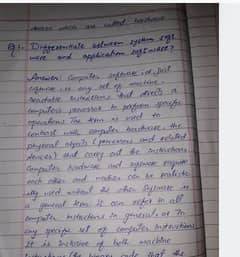 devices which are called hardware
Q1. Differentiate between system soft
ware and application software?
Answer: Computer software or just
software is any set of machine
readable instructions that directs a
computer's processor to perform specific
operations. The term is used to
contrast with computer hardware, the
physical objects (processor and related
devices) that carry out the instructions
Computer hardware and software require
each other and neither can be realistic
ally used without the other. Software is
a general term. It can refer to all
computer instructions in general or
any specific set of computer instructions
It is inclusive of both machine
instructions (the binary code that the